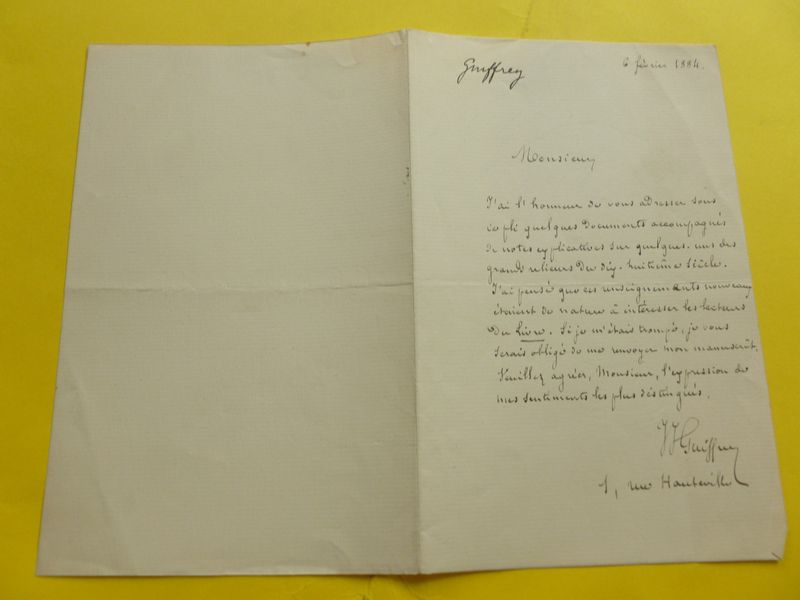 Guiffrey
6 février 1884.
Monsieur
J'ai l'honneur de vous adresser sous
ce pli quelques documents accompagnés
de notes explicatives sur quelques-uns des
grands relieurs du dix-huitième siècle.
J'ai pensé que ces renseignements nouveaux
étaient de nature à intéresser les lecteurs
du Livre. Si je m'étais trompé, je vous
serais obligé de me renvoyer mon manuscrit.
Veuillez agréer, Monsieur, l'expression de
mes sentiments les plus distingués.
JJ Guiffrey
1, rue Hauteville